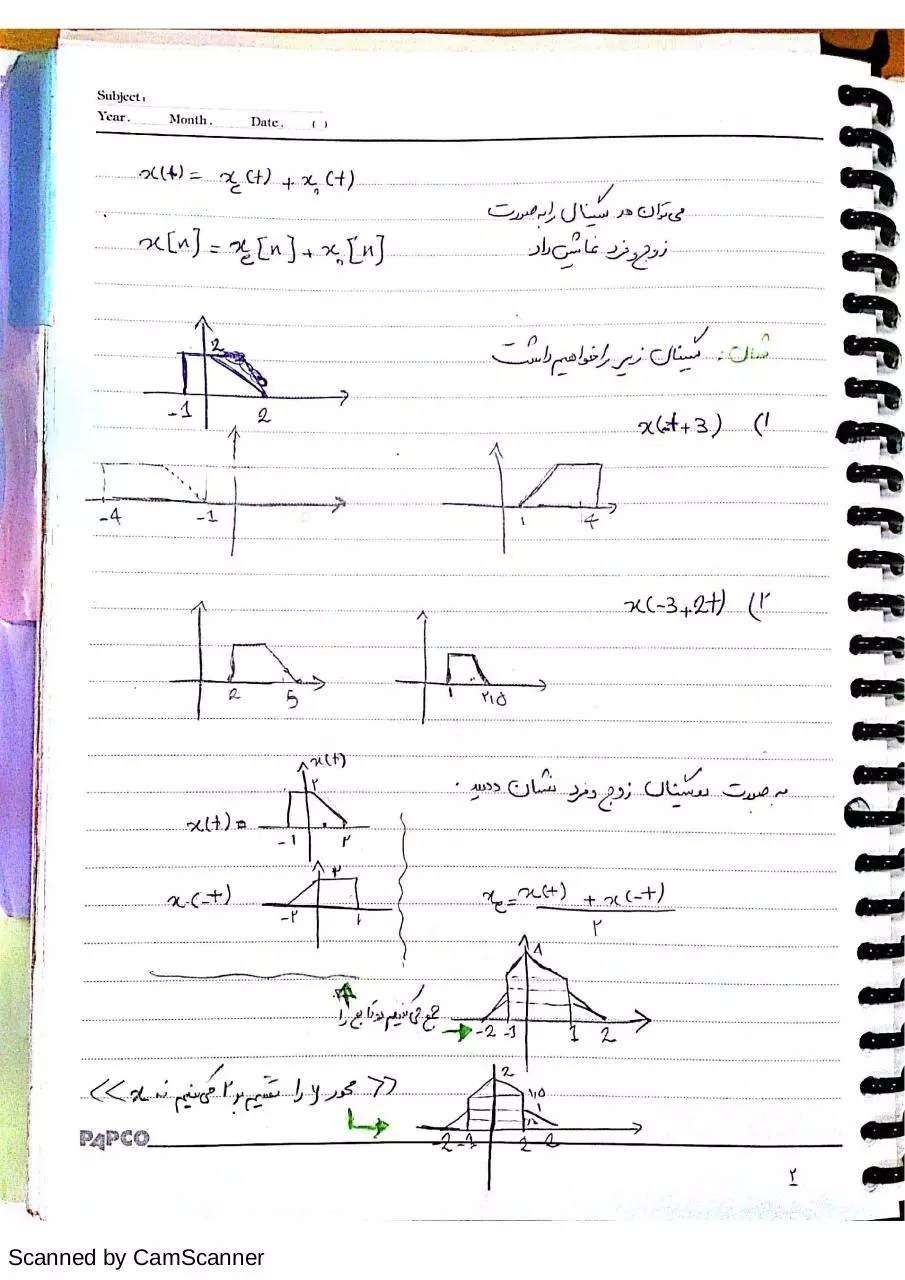 Subject:
Year. Month. Date. ( )
x(t) = xe(t) + xo(t)
می‌توان هر سیگنال را به صورت
x[n] = xe[n] + xo[n]
زوج و فرد نمایش داد
مثال: سیگنال زیر را خواهیم داشت
2
-1 2
x(-t+3) (1
-4 -1
1 4
x(-3+2t) (۲
2 5
1 ۲,۵
به صورت دو سیگنال زوج و فرد نشان دهید.
x(t)
۲
x(t) =
-1 ۲
x(-t)
۲
-۲ 1
xe = x(t) + x(-t)
۲
جمع می‌کنیم دو تابع را
-2 -1 1 2
<< محور y را تقسیم بر ۲ می‌کنیم نه x >>
2
1,5
1
-2 -1 2 2
PAPCO
۲
Scanned by CamScanner